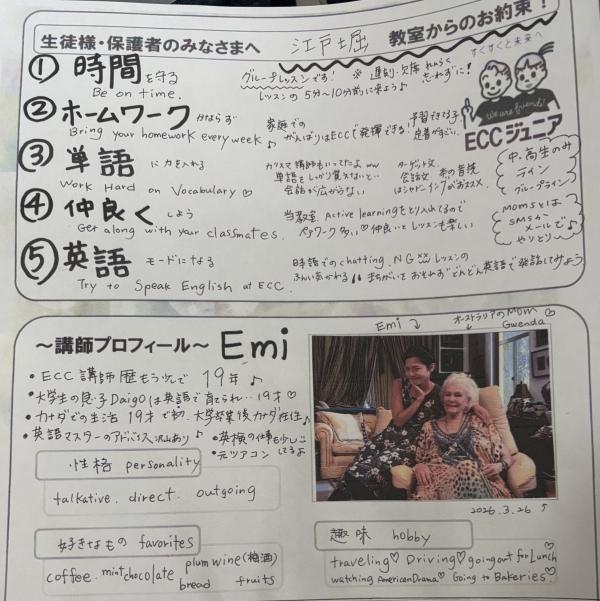 生徒様・保護者のみなさまへ 江戸堀 教室からのお約束!
すくすくと未来へ
① 時間 を守る
Be on time.
グループレッスンです! ※遅刻・欠席 れんらく 忘れずに!
レッスンの5分~10分前に来よう♪
② ホームワーク かならず
Bring your homework every week ♪
家庭での がんばりはECCで発揮できる.
予習できてる子 定着がすごい.
we are friends!
ECCジュニア
③ 単語 に力を入れる
Work Hard on Vocabulary ♡
カリスマ講師もいってたよ ww
単語をしっかり覚えないと…
会話が広がらない
ターゲット文
会話文
はシャドーイングがおススメ.
中・高生のみ
ライン
グループライン
④ 仲良く しよう
Get along with your classmates.
当教室. Active learningをとり入れてるので
ペアワーク多い♡仲良いとレッスンも楽しい
momsとは
SMSか
メールで♪
やりとり~
⑤ 英語 モードになる
Try to Speak English at ECC.
日本語でのchatting. NG レッスンの
ふんいきかわる!! まちがいをおそれずどんどん英語で発話してみよう
~講師プロフィール~ Emi
Emi
オーストラリアのMom♡
Gwenda
・ECC講師歴もう少しで 19年♪
・大学生の息子Daigoは英語で育てられ…19才♡
・カナダでの生活 19才で初. 大学卒業後カナダ在住♪
・英語マスターのアドバイス沢山あり♪
・英検の仕事も少し
・元ツアコン してるよ
性格 personality
talkative. direct. outgoing
2026.3.26
好きなもの favorites
coffee. mintchocolate plum wine (梅酒)
bread fruits
趣味 hobby
traveling♡ Driving♡ going out for Lunch
watching American Drama♡ Going to Bakeries.♡